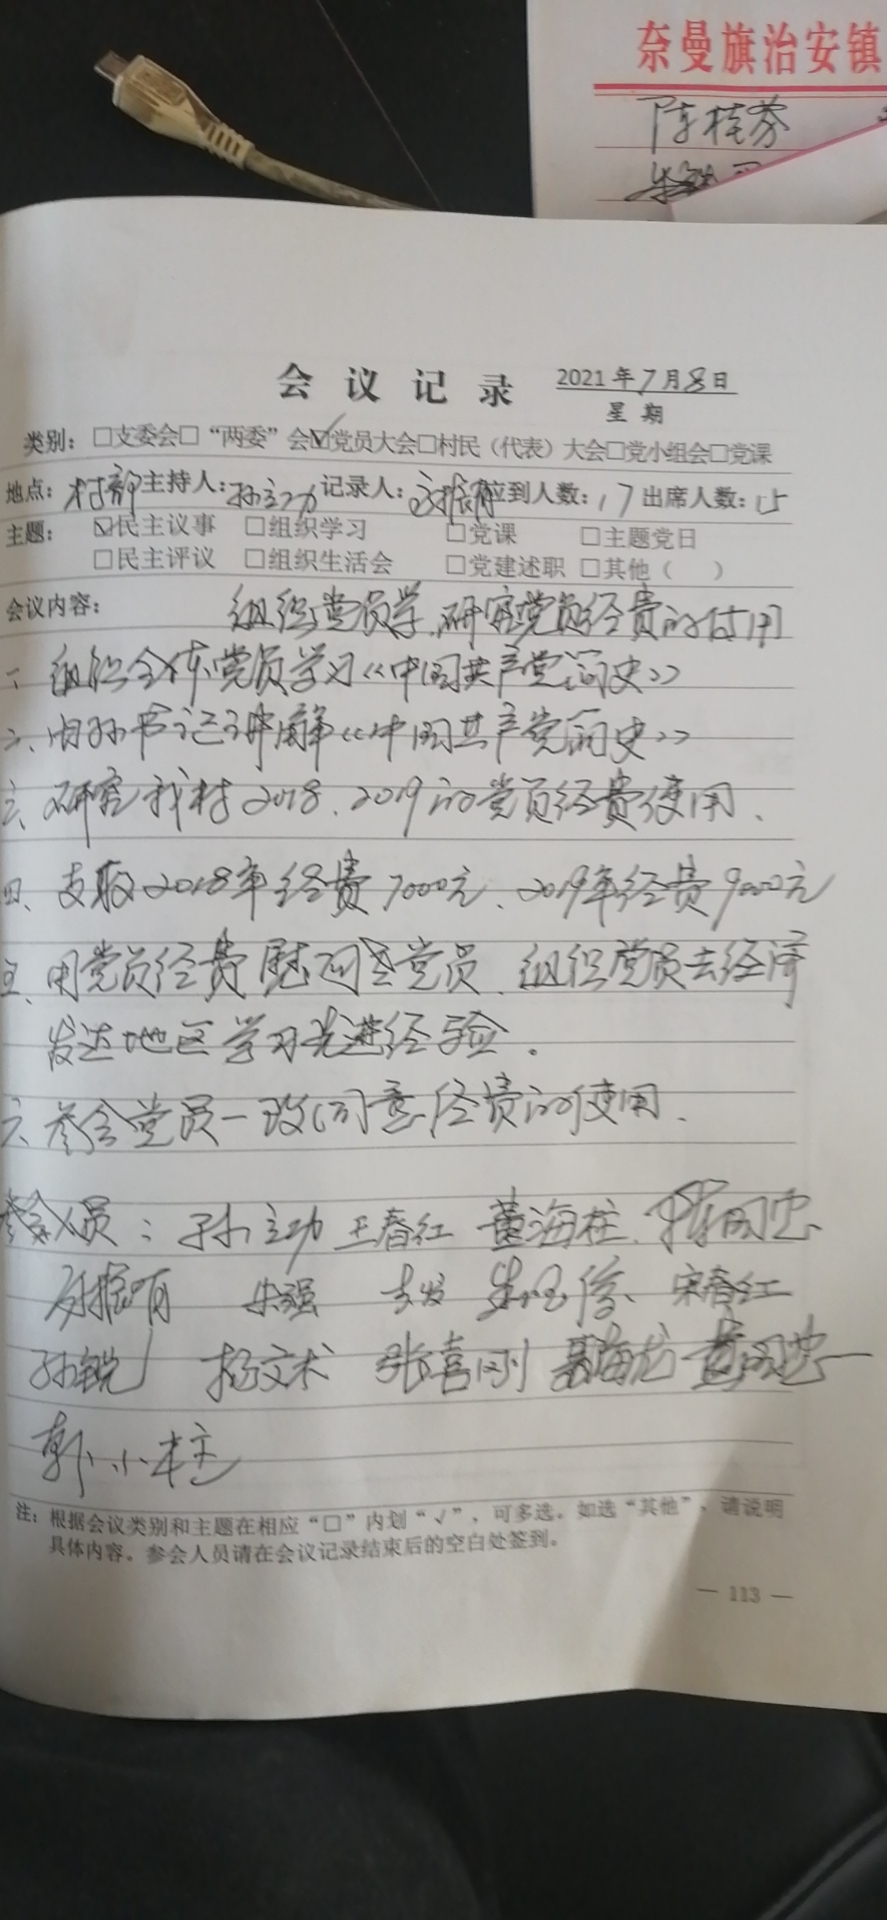 奈曼旗治安镇
陈桂芬
会议记录 2021年7月8日
星期
类别：□支委会□“两委”会☑党员大会□村民（代表）大会□党小组会□党课
地点：村部 主持人：孙立功 记录人： 应到人数：17 出席人数：15
主题：☑民主议事 □组织学习 □党课 □主题党日
□民主评议 □组织生活会 □党建述职 □其他（ ）
会议内容： 组织党员学、研究党员经费的使用
一、组织全体党员学习《中国共产党简史》
二、由孙书记讲解《中国共产党简史》
三、研究我村2018、2019的党员经费使用、
四、支取2018年经费7000元、2019年经费9000元
五、用党员经费慰问老党员、组织党员去经济
发达地区学习先进经验。
六、参会党员一致同意经费的使用、
参会人员：孙立功 王春红 董海柱
朱强 宋春红
孙锐 杨文术 张喜刚
郭小柱
注：根据会议类别和主题在相应“□”内划“√”，可多选。如选“其他”，请说明
具体内容。参会人员请在会议记录结束后的空白处签到。
— 113 —